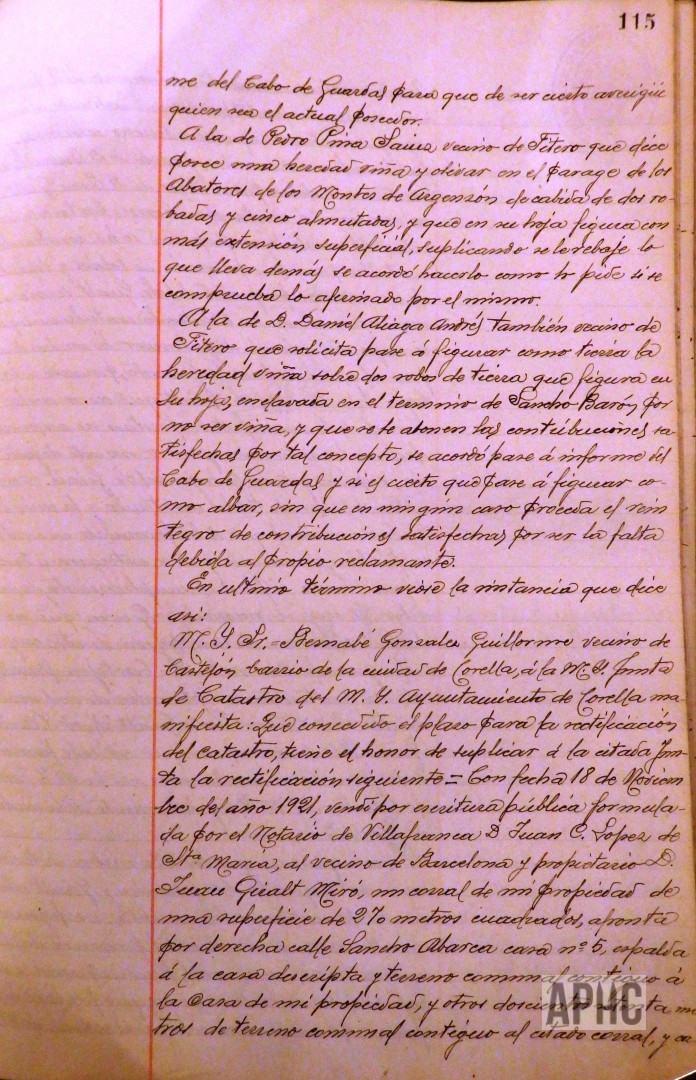 115
me del Cabo de Guardas para que de ser cierto averigüe
quien sea el actual poseedor.
A la de Pedro Pina Sainz vecino de Fitero que dice
posee una heredad viña y olivar en el parage de los
Abatores de los Montes de Argenzón de cabida de dos ro-
badas y cinco almutadas, y que en su hoja figura con
más extensión superficial, suplicando se le rebaje lo
que lleva demás se acordó hacerlo como lo pide si se
comprueba lo afirmado por el mismo.
A la de D. Daniel Aliaga Andrés también vecino de
Fitero que solicita pase á figurar como tierra la
heredad viña sobre dos robos de tierra que figura en
su hoja, enclavada en el termino de Sancho Barón, por
no ser viña, y que se le abonen las contribuciones sa-
tisfechas por tal concepto, se acordó pase á informe del
Cabo de Guardas y si es cierto que pase á figurar co-
mo albar, sin que en ningún caso proceda el rein
tegro de contribuciones satisfechas por ser la falta
debida al propio reclamante.
En ultimo término viose la instancia que dice
asi:
M. Y. Sr. = Bernabé Gonzalez Guillorme vecino de
Castejón barrio de la ciudad de Corella, á la M. Y. Junta
de Catastro del M. Y. Ayuntamiento de Corella ma-
nifiesta: Que concedido el plazo para la rectificación
del catastro, tiene el honor de suplicar á la citada Jun-
ta la rectificación siguiente = Con fecha 18 de Noviem
bre del año 1921, vendi por escritura pública formula-
da por el Notario de Villafranca D Juan C. Lopez de
Sta Maria, al vecino de Barcelona y propietario D.
Juan Giralt Miró, un corral de mi propiedad de
una superficie de 270 metros cuadrados, afronta
por derecha calle Sancho Abarca casa nº 5, espalda
á la casa descripta y terreno comunal contiguo á
la Casa de mi propiedad, y otros doscientos setenta me
tros de terreno comunal contiguo al citado corral, y ca-
APHC